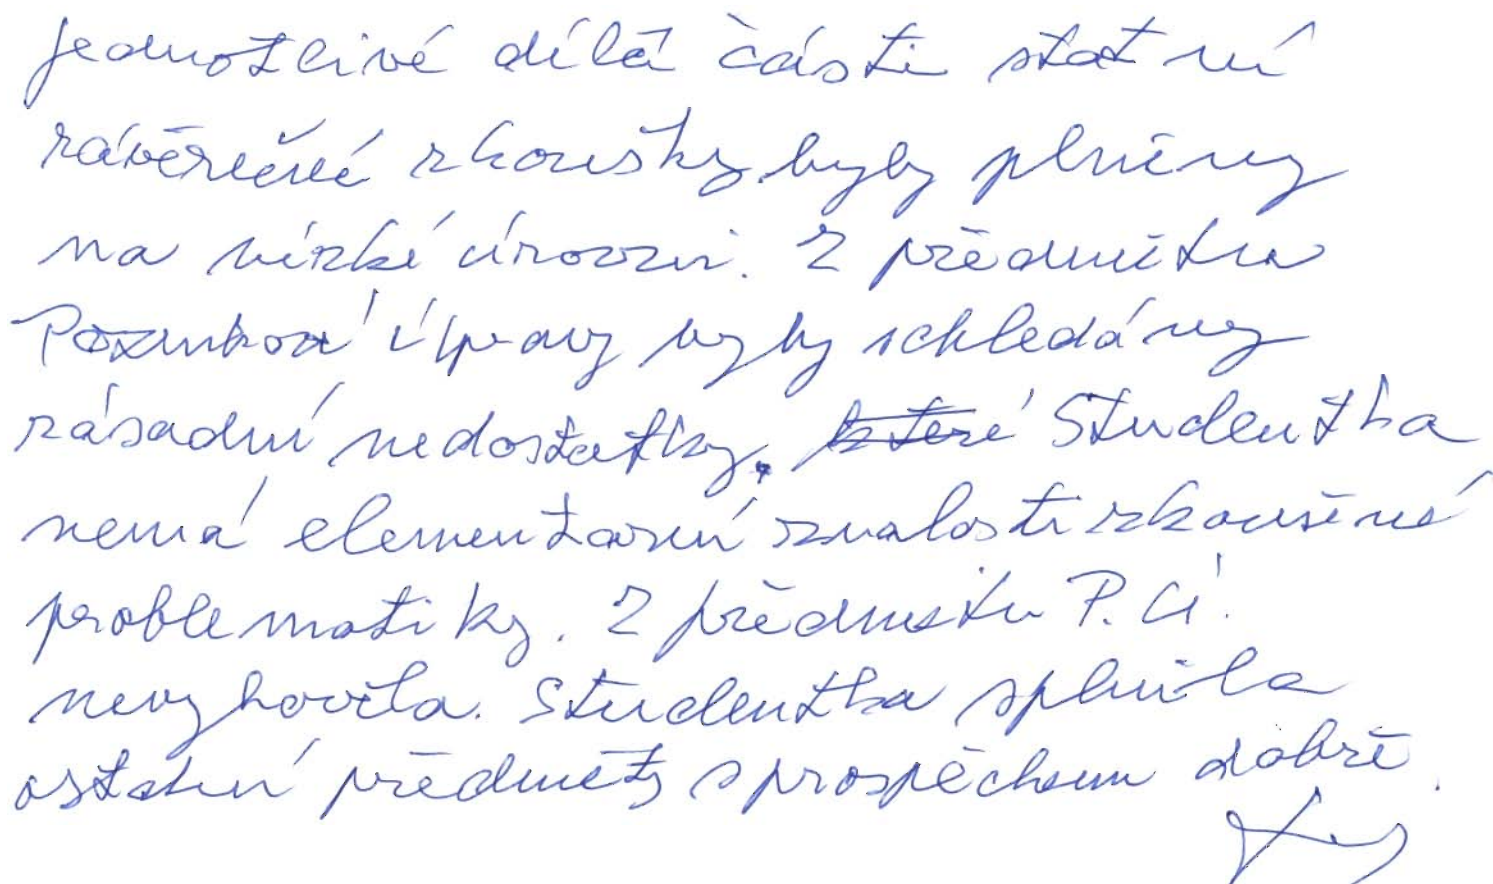 jednotlivé dílčí části státní
závěrečné zkoušky byly plněny
na nízké úrovni. Z předmětu
Pozemkové úpravy byly schledány
zásadní nedostatky. které Studentka
nemá elementarní znalosti zkoušené
problematiky. Z předmětu P. Ú.
nevyhověla. Studentka splnila
ostatní předměty s prospěchem dobře.